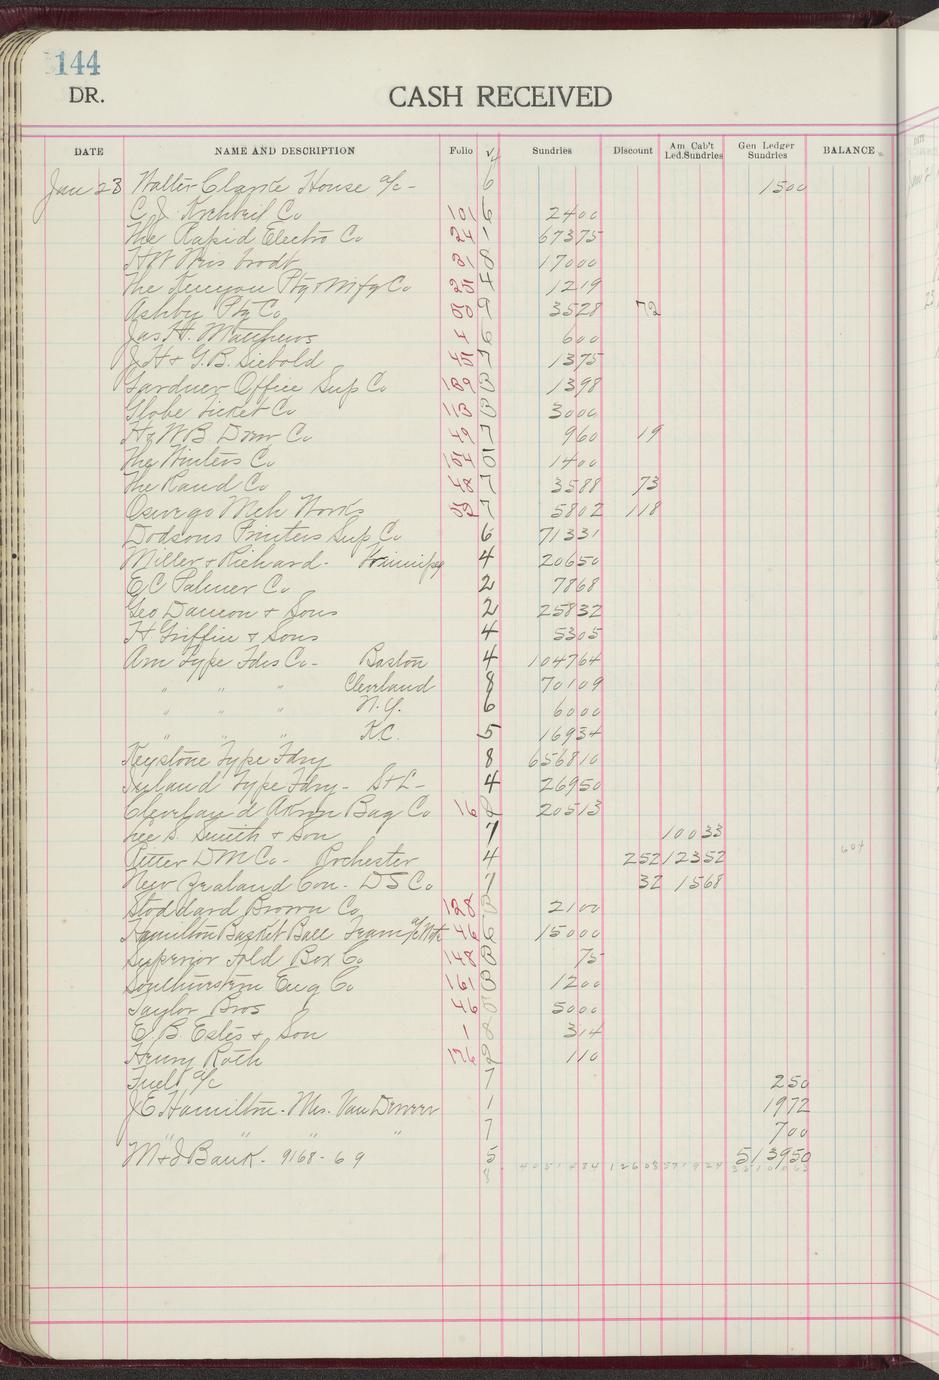 144
DR.
CASH RECEIVED
DATE NAME AND DESCRIPTION Folio √ Sundries Discount Am Cab't Led.Sundries Gen Ledger Sundries BALANCE
Jan 23 Walter Clark House a/c - 6 1500
C.J. Co 101 6 2400
The Rapid Electro Co 24 1 67375
H W 31 8 17000
The Kenyon Ptg & Mfg Co 25 4 1219
Ashby Ptg Co 80 9 3528 72
Jas. H. Matthews 4 6 600
J H & G.B. Siebold 45 7 1375
Gardner Office Sup Co 189 3 1398
Globe Ticket Co 113 3 3000
H & W B Drew Co 49 7 960 19
The Winters Co 154 5 1400
The Rand Co 48 7 3588 73
Oswego Mch Works 52 7 5802 118
Dodsons Printers Sup Co 6 71331
Miller & Richard - Winnipeg 4 20650
E C Palmer Co 2 7868
Geo Damon & Sons 2 25832
H Griffin & Sons 4 5305
Am Type Fdrs Co - Boston 4 104764
" " " Cleveland 8 70109
" " " N.Y. 6 6000
" " " K.C. 5 16934
Keystone Type Fdry 8 656810
Inland Type Fdry - St L - 4 26950
Cleveland Akron Bag Co 16 8 20513
Lee S. Smith & Son 7 10033
Ritter D M Co - Rochester 4 252 12352 604
New Zealand Con - D S Co 7 32 1568
Stoddard Brown Co 128 3 2100
Hamilton Basket Ball Team a/c Note 46 6 15000
Superior Fold Box Co 148 3 75
Southwestern Eng Co 161 3 1200
Taylor Bros 46 5 5000
E B Estes & Son 1 8 314
Henry Roth 176 2 110
Fuel a/c 7 250
J E Hamilton - Mrs. Van Denver 1 1972
" " " 7 700
M & I Bank - 9168-69 5 513950
8